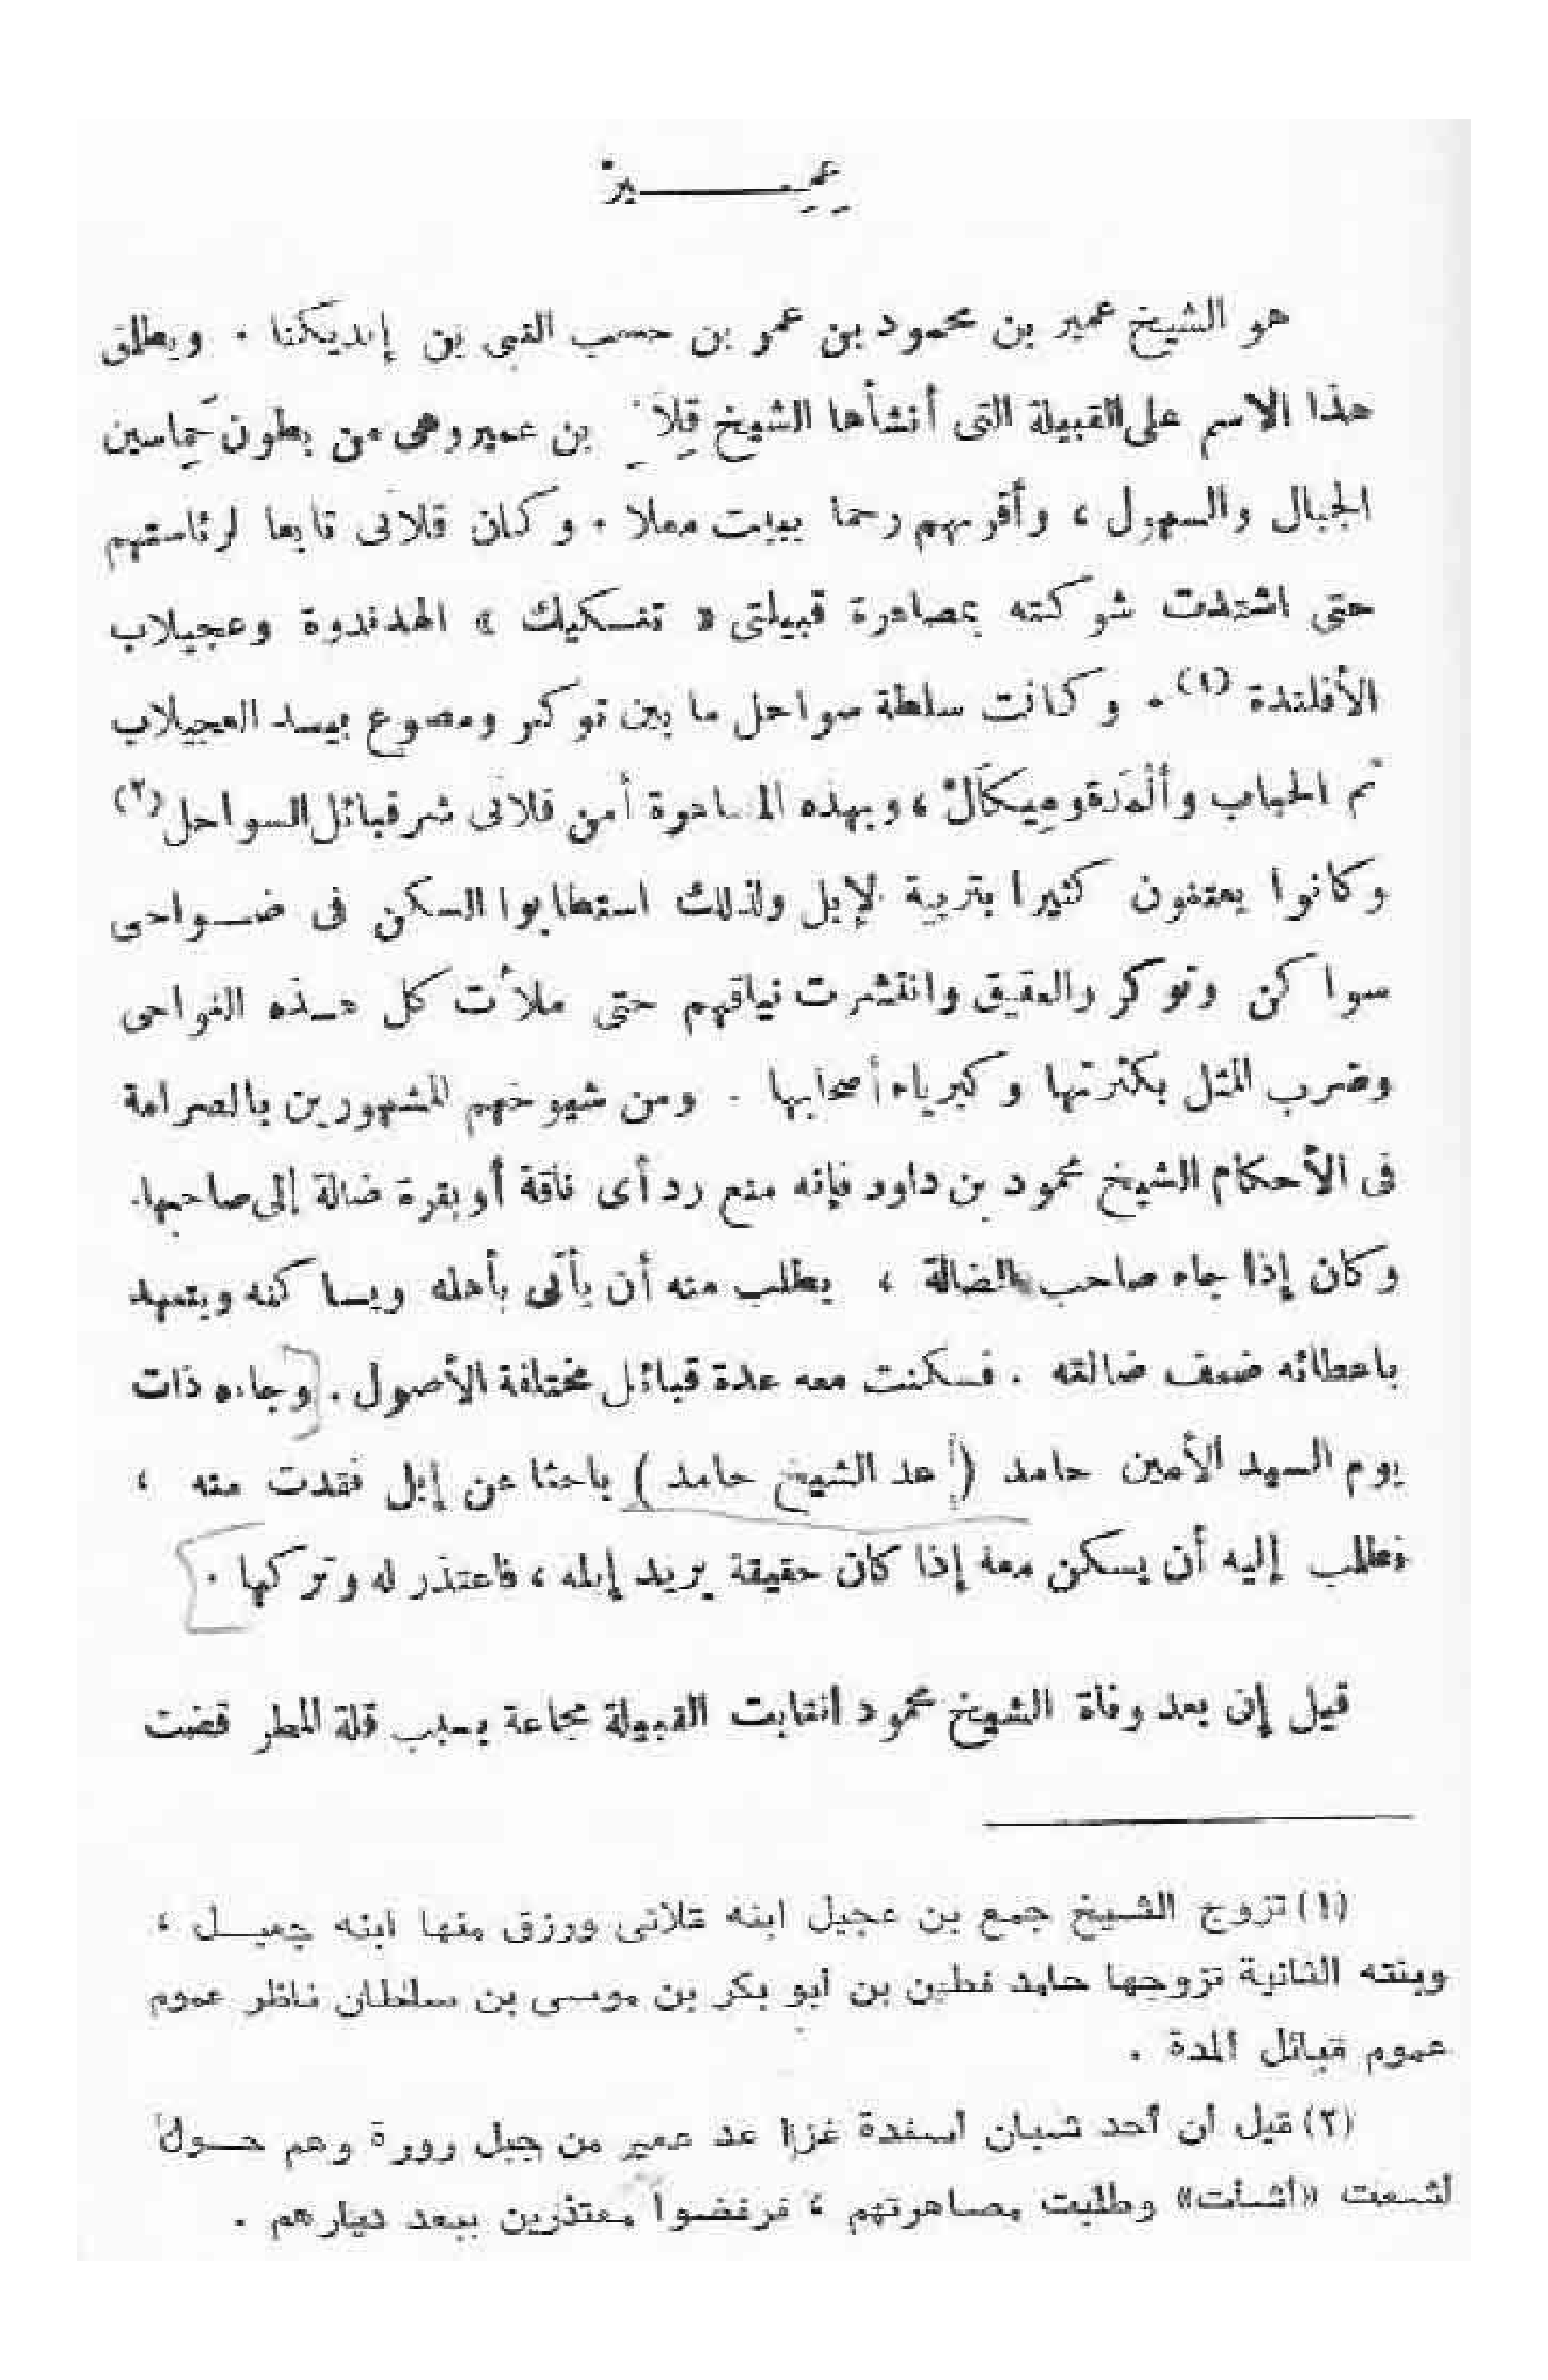 عِمِــــــــيرْ
هو الشيخ عمير بن محمود بن عمر بن حسب النبى بن إبديكنا . ويطلق
هذا الاسم على القبيلة التى أنشأها الشيخ بن عمير وهى من بطون حماسين
الجبال والسهول ، وأقربهم رحما ببيت معلا . وكان قلاتى تابعا لرئاستهم
حتى اشتدت شوكته بمصاهرة قبيلتى « تفسكيك » الهدندوة وعجيلاب
الأفلندة (١) . وكانت سلطة سواحل ما بين توكر ومصوع بيــد العجيلاب
ثم الحباب وألمدة وميكال ، وبهذه المصاهرة أمن قلاتى شر قبائل السواحل (٢)
وكانوا يعتنون كثيرا بتربية الإبل ولذلك استطابوا السكن فى ضــواحى
سواكن وتوكر والعقيق وانتشرت نياقهم حتى ملأت كل هــذه النواحى
وضرب المثل بكثرتها وكبرياء أصحابها . ومن شيوخهم المشهورين بالصرامة
فى الأحكام الشيخ محمود بن داود فإنه منع رد أى ناقة أو بقرة ضالة إلى صاحبها.
وكان إذا جاء صاحب الضالة ، يطلب منه أن يأتى بأهله ويساكنه ويتعهد
باعطائه ضعف ضالته . فسكنت معه عدة قبائل مختلفة الأصول . وجاءه ذات
يوم السيد الأمين حامد ( عد الشيخ حامد ) باحثا عن إبل فقدت منه ،
فطلب إليه أن يسكن معه إذا كان حقيقة يريد إبله ، فاعتذر له وتركها .
قيل إن بعد وفاة الشيخ محمود انتابت القبيلة مجاعة بسبب قلة المطر قضت
(١) تزوج الشيخ جمع بن عجيل ابنه قلاتى ورزق منها ابنه جميــل ،
وبنته الثانية تزوجها حامد فطين بن أبو بكر بن موسى بن سلطان ناظر عموم
عموم قبائل المدة .
(٢) قيل أن أحد شبان اسفدة غزا عد عمير من جبل رورة وهم حــول
لشعت «أشأت» وطلبت مصاهرتهم ، فرفضوا معتذرين ببعد ديارهم .